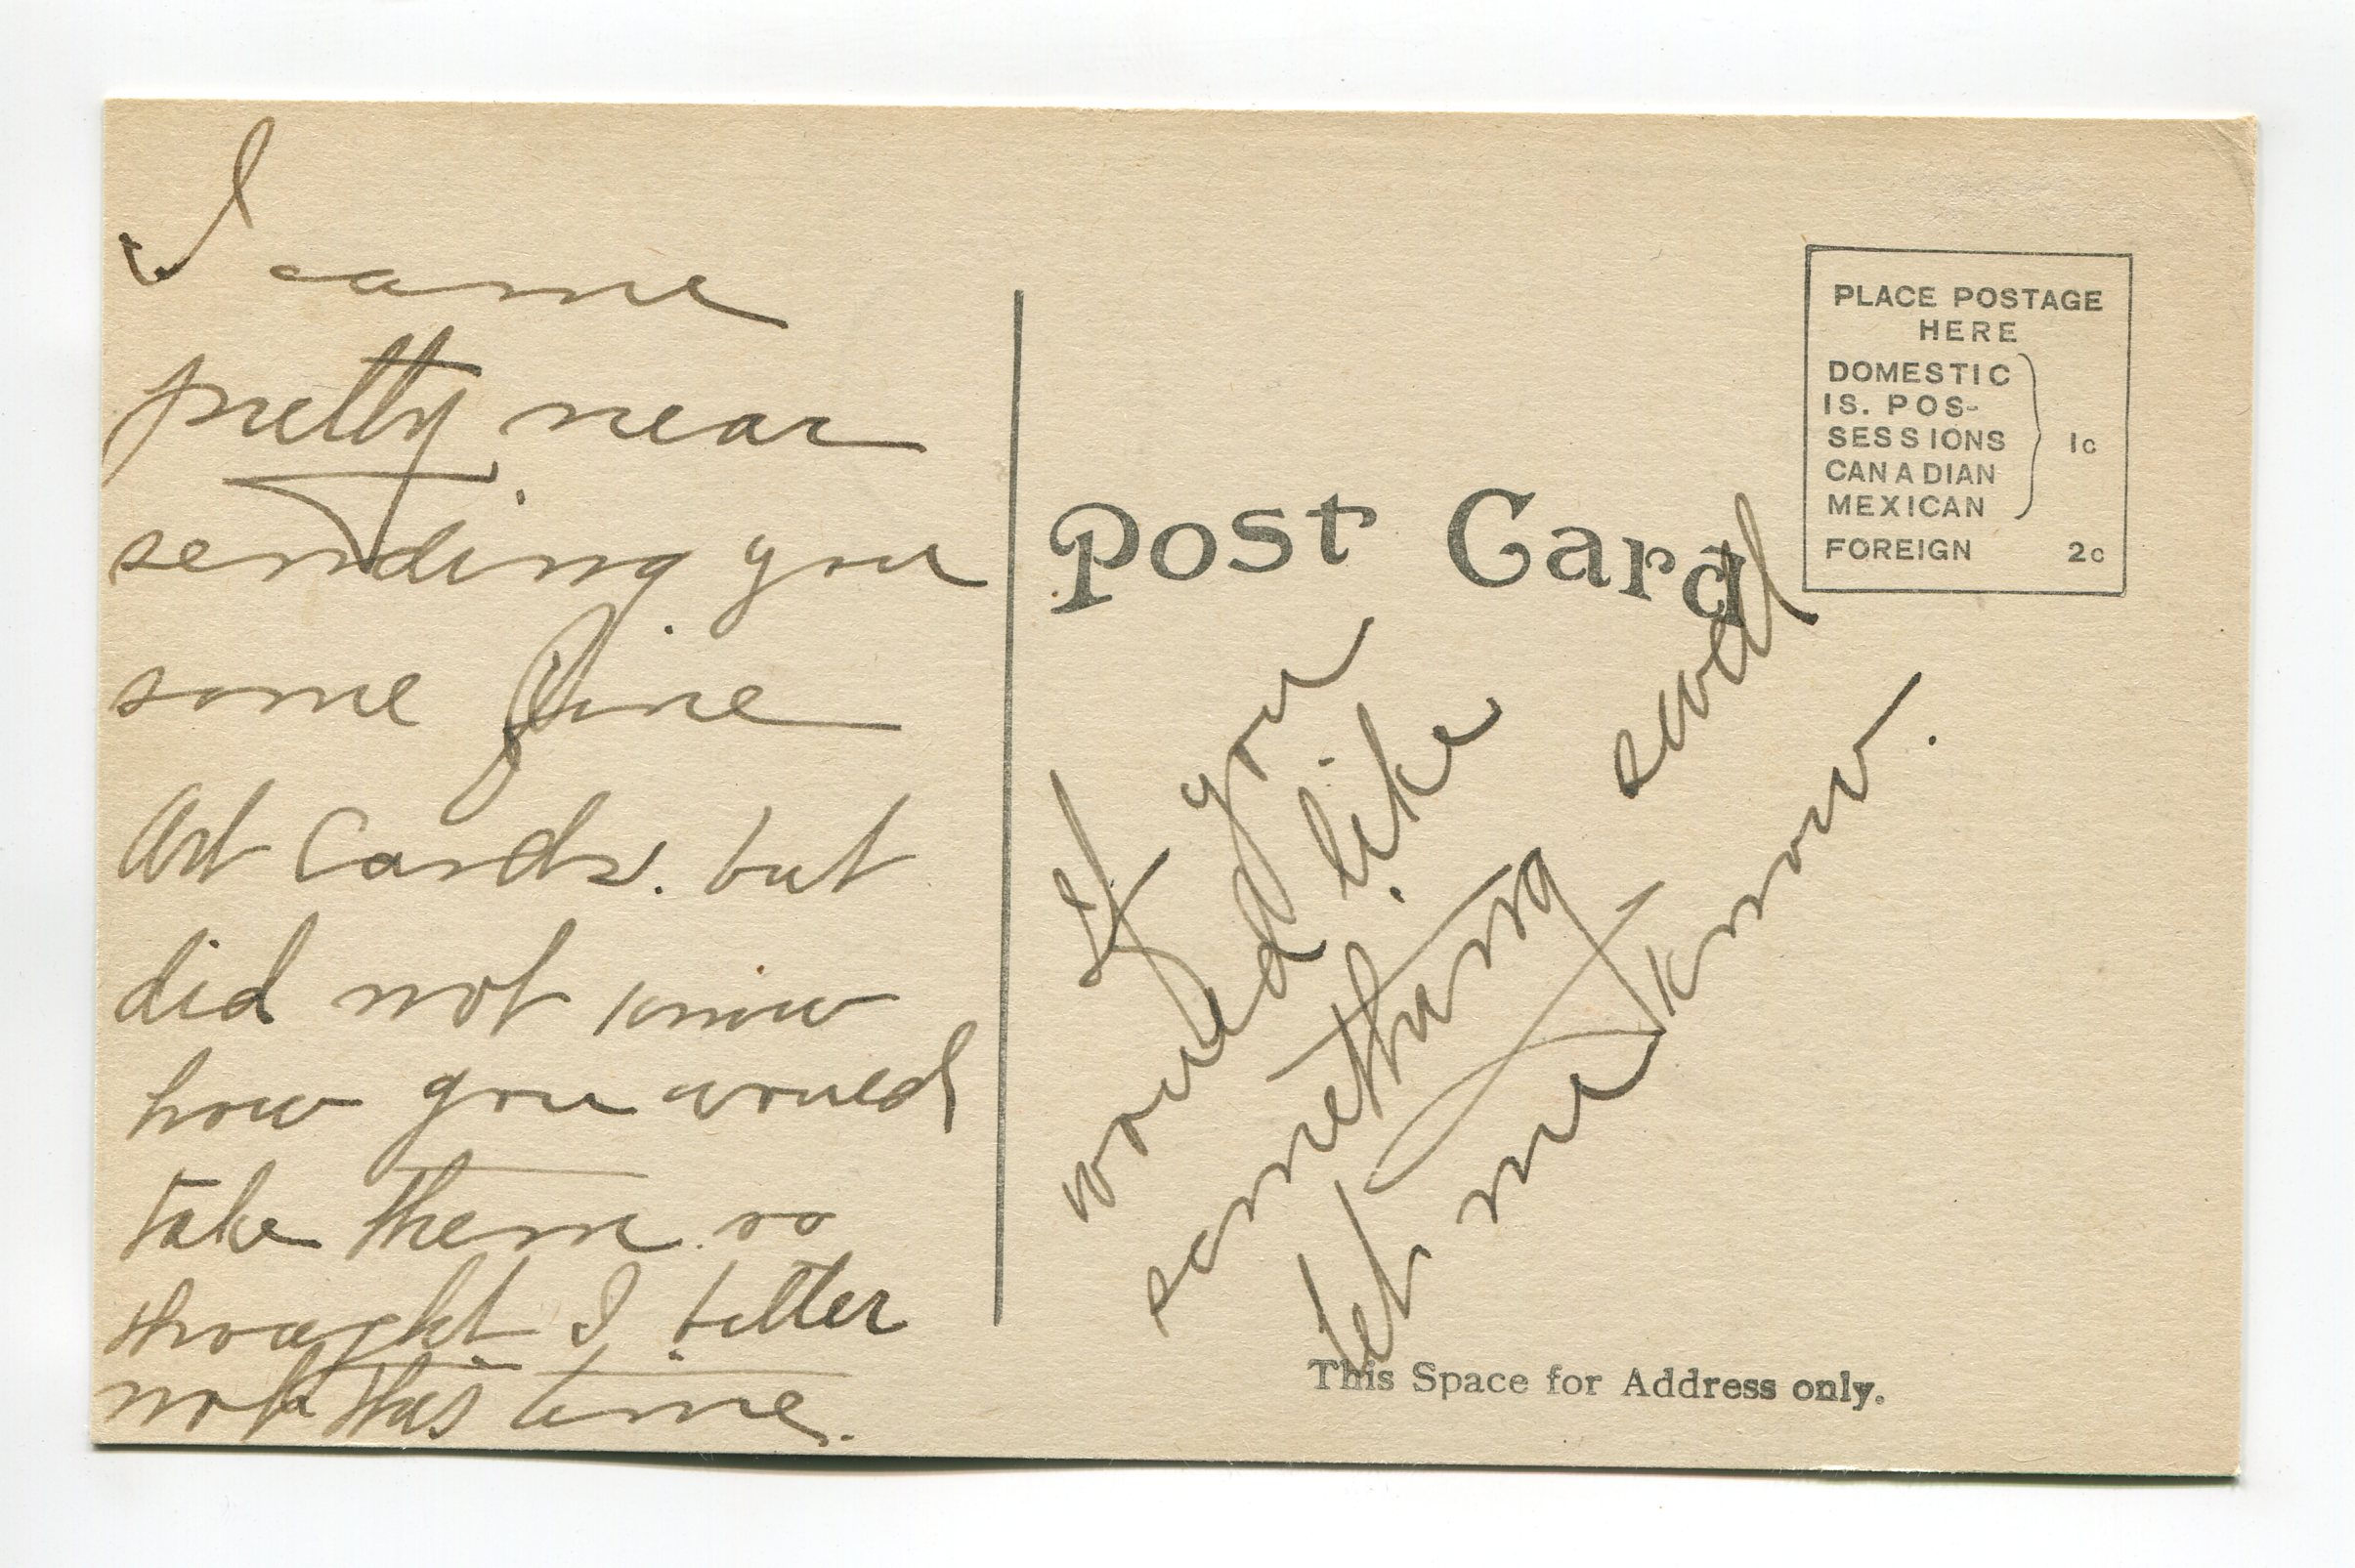 I came
pretty near
sending you
some fine
Art Cards. but
did not know
how you would
take them so
thought I better
not this time.
Post Card
PLACE POSTAGE
HERE
DOMESTIC
IS. POS-
SESSIONS
CANADIAN
MEXICAN
1c
FOREIGN 2c
If you
would like
something
let me know.
This Space for Address only.